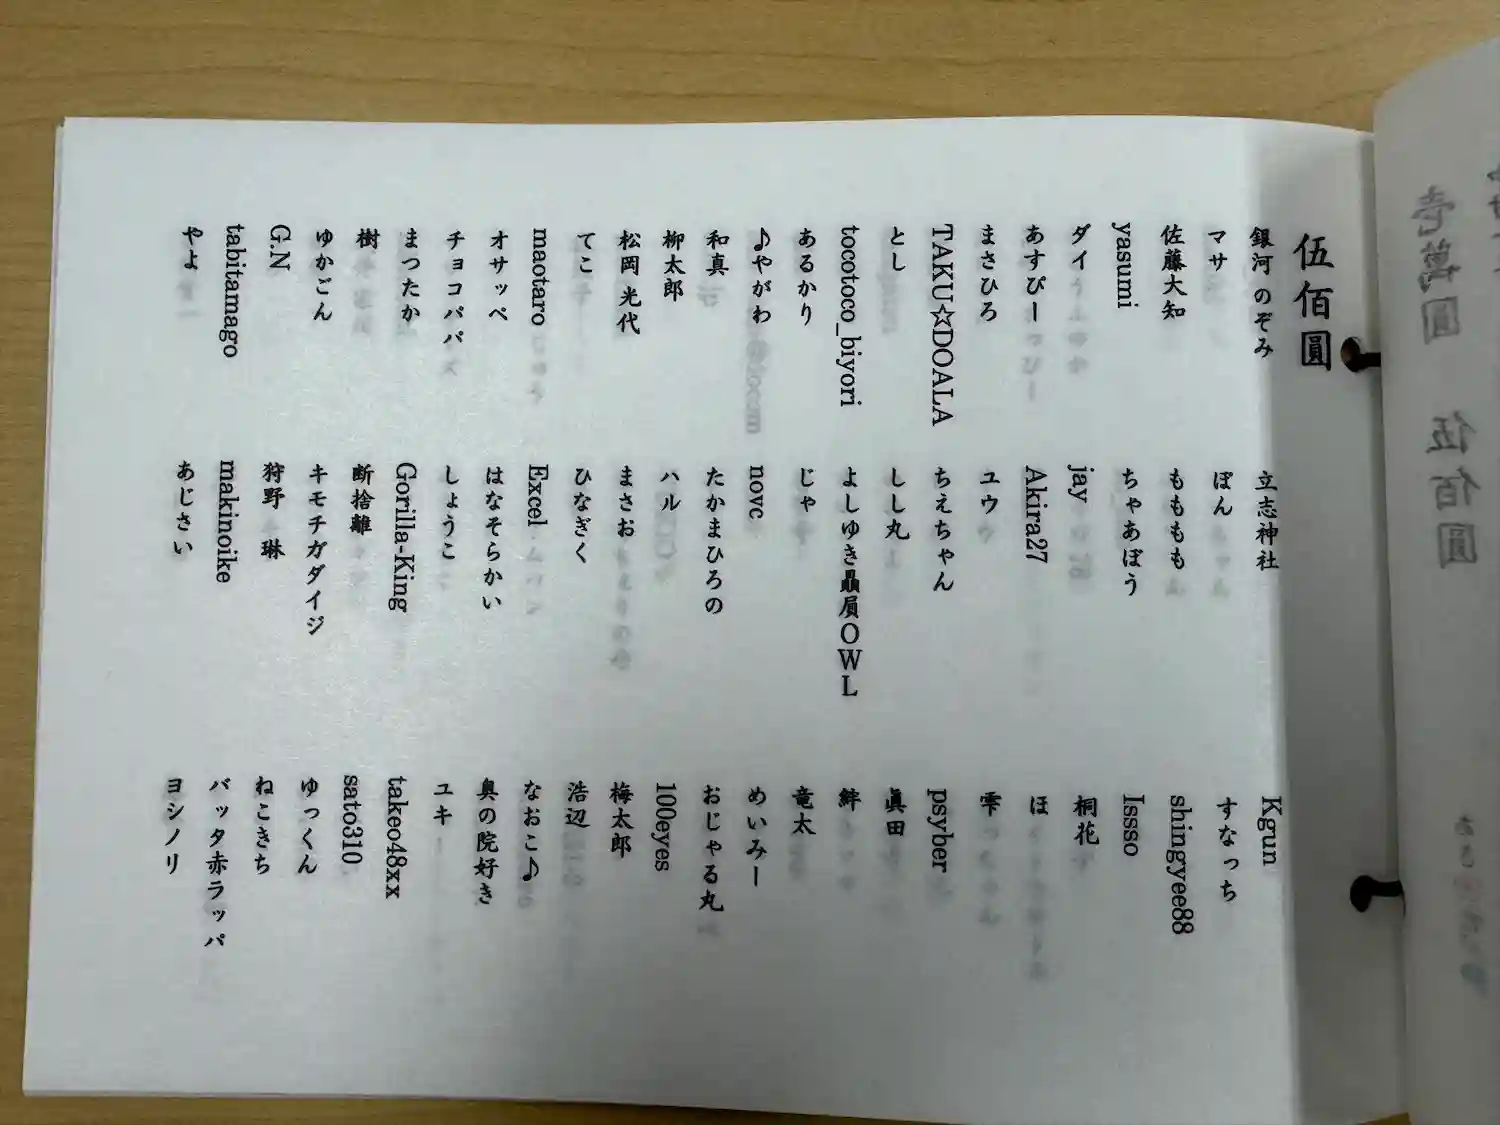 伍佰圓
銀河 のぞみ
立志神社
Kgun
マサ
ぽん
すなっち
佐藤大知
もももも
shingyee88
yasumi
ちゃあぼう
Issso
ダイ
jay
桐花
あすぴー
Akira27
ほ
まさひろ
ユウ
雫
TAKU☆DOALA
ちえちゃん
psyber
とし
しし丸
眞田
tocotoco_biyori
よしゆき贔屓OWL
絆
あるかり
じゃ
竜太
♪やがわ
novc
めいみー
和真
たかまひろの
おじゃる丸
柳太郎
ハル
100eyes
松岡 光代
まさお
梅太郎
てこ
ひなぎく
浩辺
maotaro
Excel
なおこ♪
オサッペ
はなそらかい
奥の院好き
チョコパパ
しょうこ
ユキ
まつたか
Gorilla-King
takeo48xx
樹
断捨離
sato310
ゆかごん
キモチガダイジ
ゆっくん
G.N
狩野 琳
ねこきち
tabitamago
makinoike
バッタ赤ラッパ
やよ
あじさい
ヨシノリ